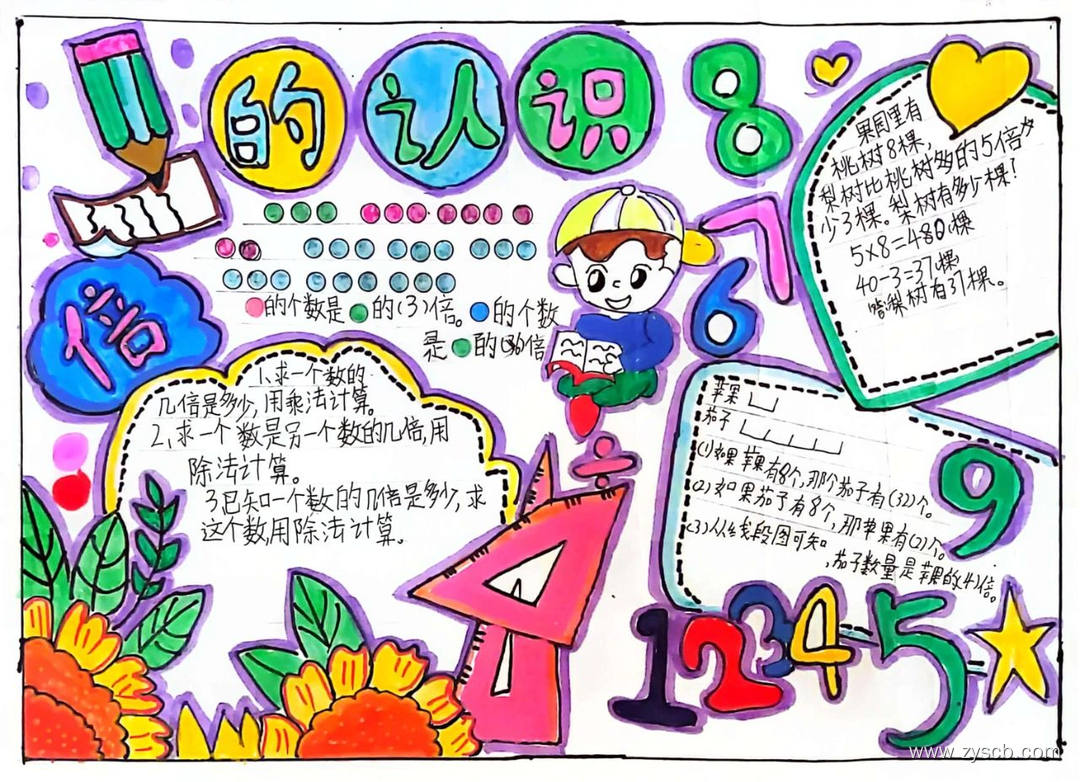 倍
的认识
的个数是 的(3)倍。 的个数
是 的( )倍
1、求一个数的
几倍是多少,用乘法计算。
2、求一个数是另一个数的几倍,用
除法计算。
3、已知一个数的几倍是多少,求
这个数,用除法计算。
果园里有
桃树8棵,
梨树比桃树多的5倍少
少3棵。梨树有多少棵?
5×8=480棵
40-3=37棵
答梨树有37棵。
苹果
茄子
(1)如果苹果有8个,那个茄子有(32)个。
(2)如果茄子有8个,那苹果有(2)个。
(3)从线段图可知
,茄子数量是苹果的(4)倍。
8
7
6
÷
9
1 2 3 4 5
www.zyscb.com